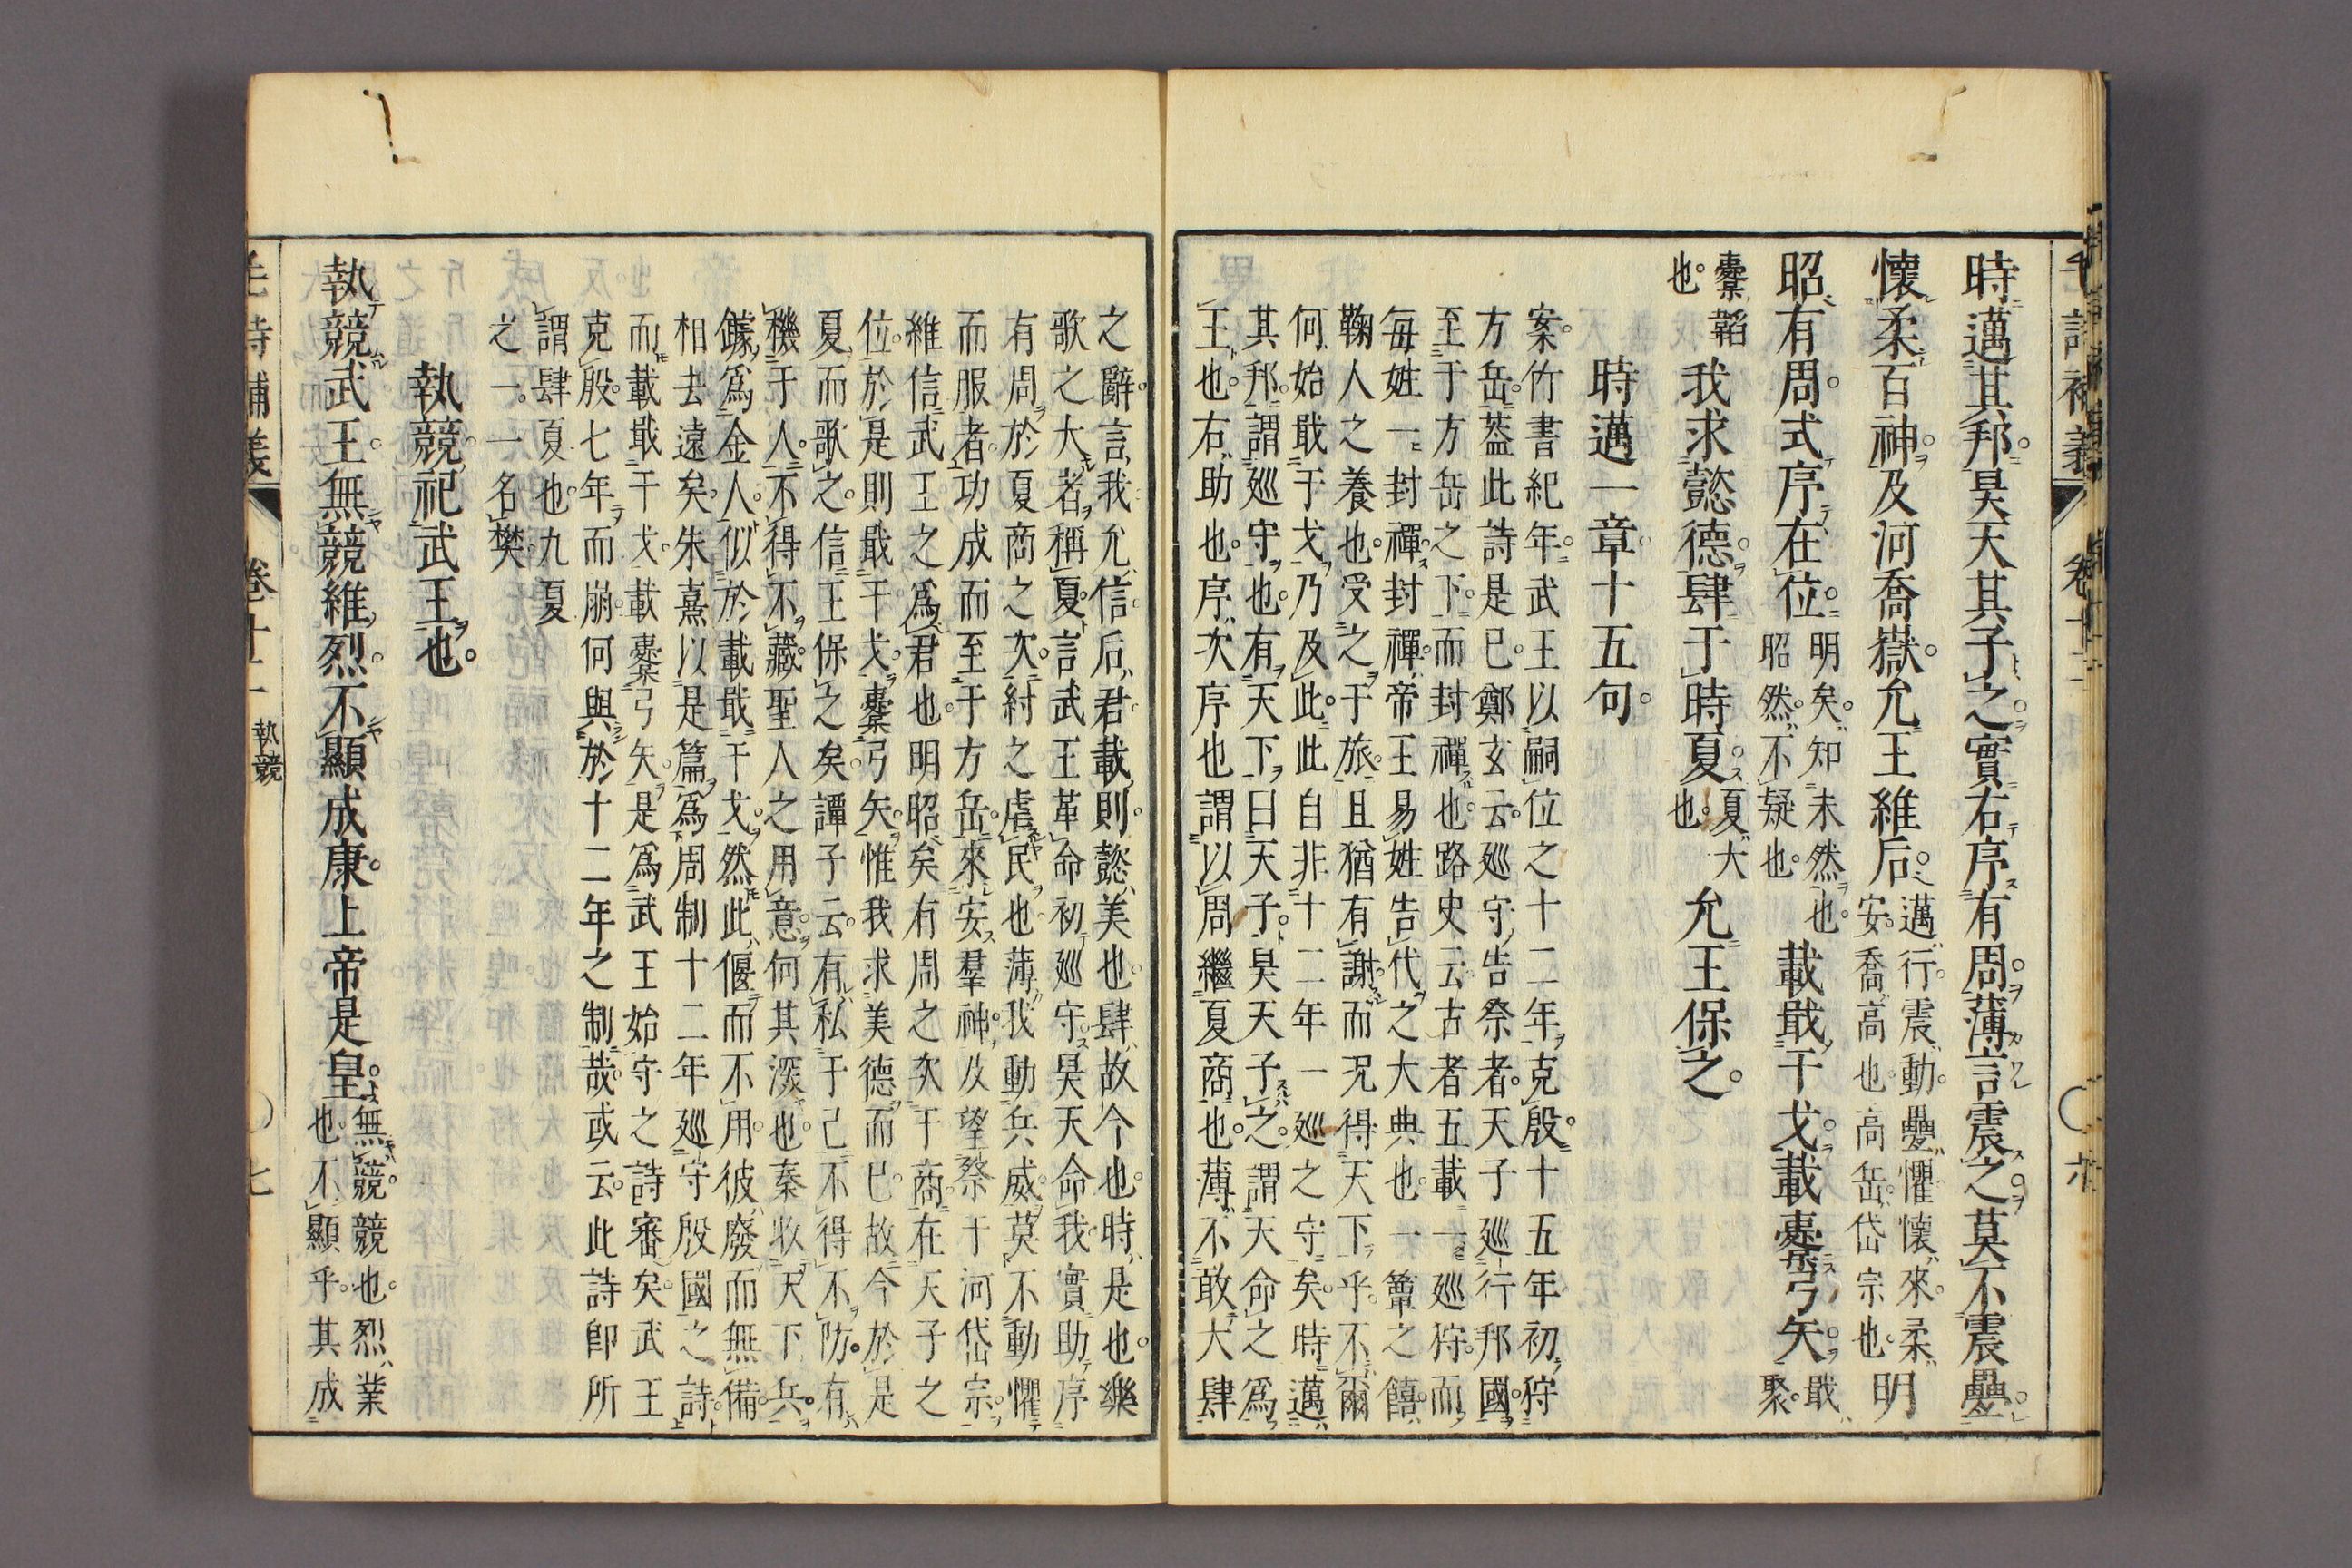 時邁其邦昊天其子之實右序有周薄言震之莫不震疊
懷柔百神及河喬嶽允王維后邁行震動疊懼懷來柔安喬高也高岳岱宗也明
昭有周式序在位明矣知未然也昭然不疑也載戢干戈載櫜弓矢戢聚
櫜韜也我求懿德肆于時夏夏大也允王保之
時邁一章十五句
案竹書紀年武王以嗣位之十二年克殷十五年初狩
方岳葢此詩是已鄭玄云巡守告祭者天子巡行邦國
至于方岳之下而封禪也路史云古者五載一巡狩而
每姓一封禪封禪帝王易姓告代之大典也一簞之饎
鞠人之養也受之于旅且猶有謝而況得天下乎不爾
何始戢干戈乃及此此自非十二年一巡之守矣時邁
其邦謂巡守也有天下曰天子昊天子之謂天命之爲
王也右助也序次序也謂以周繼夏商也薄不敢大肆
之辭言我允信后君載則懿美也肆故今也時是也樂
歌之大者稱夏言武王革命初巡守昊天命我實助序
有周於夏商之次紂之虐民也薄我動兵威莫不動懼
而服者功成而至于方岳來安羣神及望祭于河岱宗
維信武王之爲君也明昭矣有周之次于商在天子之
位於是則戢干戈櫜弓矢惟我求美德而已故今於是
夏而歌之信王保之矣譚子云有私于己不得不防有
機于人不得不藏聖人之用意何其深也秦收天下兵
鐻爲金人似於載戢干戈然此偃而不用彼廢而無備
相去遠矣朱熹以是篇爲周制十二年巡守殷國之詩
而載戢干戈載櫜弓矢是爲武王始守之詩審矣武王
克殷七年而崩何與於十二年之制哉或云此詩卽所
謂肆夏也九夏
之一一名樊
執競祀武王也
執競武王無競維烈不顯成康上帝是皇無競競也烈業也不顯顯乎其成
毛詩補義 卷十二 執競 ○七